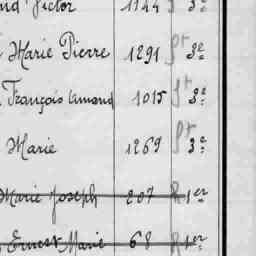 Victor 1144 3e
Marie Pierre 1291 st 3e
François Amand 1015 st 3e
Marie 1269 st 3e
Marie Joseph 207 R 1er
Ernest Marie 68 R 1er